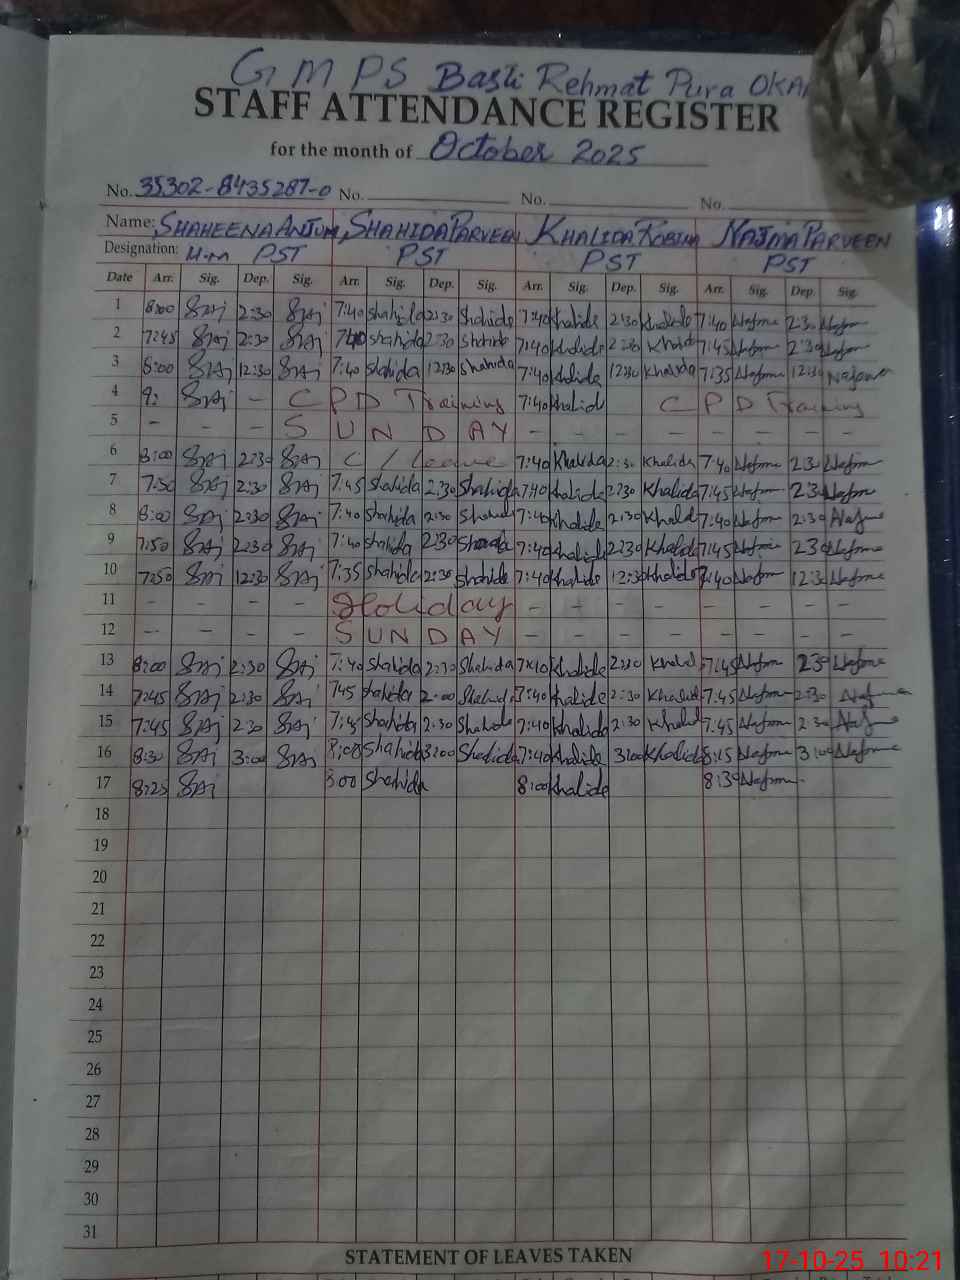 G M P S Basti Rehmat Pura OKA
STAFF ATTENDANCE REGISTER
for the month of October 2025
No. 35302-8435287-0 No. No. No.
Name: SHAHEENA ANJUM SHAHIDA PARVEEN KHALIDA ROBINA NAJMA PARVEEN
Designation: H.m PST PST PST PST
Date Arr. Sig. Dep. Sig. Arr. Sig. Dep. Sig. Arr. Sig. Dep. Sig. Arr. Sig. Dep. Sig.
1 8:00 2:30 7:40 Shahida 2:30 Shahida 7:40 Khalida 2:30 Khalida 7:40 Najma 2:30 Najma
2 7:45 2:30 7:40 Shahida 2:30 Shahida 7:40 Khalida 2:30 Khalida 7:45 Najma 2:30 Najma
3 8:00 12:30 7:40 Shahida 12:30 Shahida 7:40 Khalida 12:30 Khalida 7:35 Najma 12:30 Najma
4 - C P D Training 7:40 Khalid C P D Training
5 - - - S U N D A Y - - - - - - - -
6 8:00 2:30 C/leave 7:40 Khalida 2:30 Khalida 7:40 Najma 2:30 Najma
7 7:50 2:30 7:45 Shahida 2:30 Shahida 7:40 Khalida 2:30 Khalida 7:45 Najma 2:30 Najma
8 8:00 2:30 7:40 Shahida 2:30 Shahida 7:40 Khalida 2:30 Khalid 7:40 Najma 2:30 Najma
9 7:50 2:30 7:40 Shahida 2:30 Shahida 7:40 Khalida 2:30 Khalida 7:45 Najma 2:30 Najma
10 7:50 12:30 7:35 Shahida 2:30 Shahida 7:40 Khalida 12:30 Khalida 7:40 Najma 12:30 Najma
11 - - - - Holiday - - - - - - - -
12 - - - - S U N D A Y - - - - - - - -
13 8:00 2:30 7:40 Shahida 2:30 Shahida 7:40 Khalida 2:30 Khalid 7:45 Najma 2:30 Najma
14 7:45 2:30 7:45 Shahida 2:00 Shahida 7:40 Khalida 2:30 Khalid 7:45 Najma 2:30 Najma
15 7:45 2:30 7:45 Shahida 2:30 Shahida 7:40 Khalida 2:30 Khalid 7:45 Najma 2:30 Najma
16 8:30 3:00 8:00 Shahida 3:00 Shahida 7:40 Khalida 3:00 Khalida 8:15 Najma 3:00 Najma
17 8:25 Shahida 8:00 Khalida 8:30 Najma
18
19
20
21
22
23
24
25
26
27
28
29
30
31
STATEMENT OF LEAVES TAKEN
17-10-25 10:21